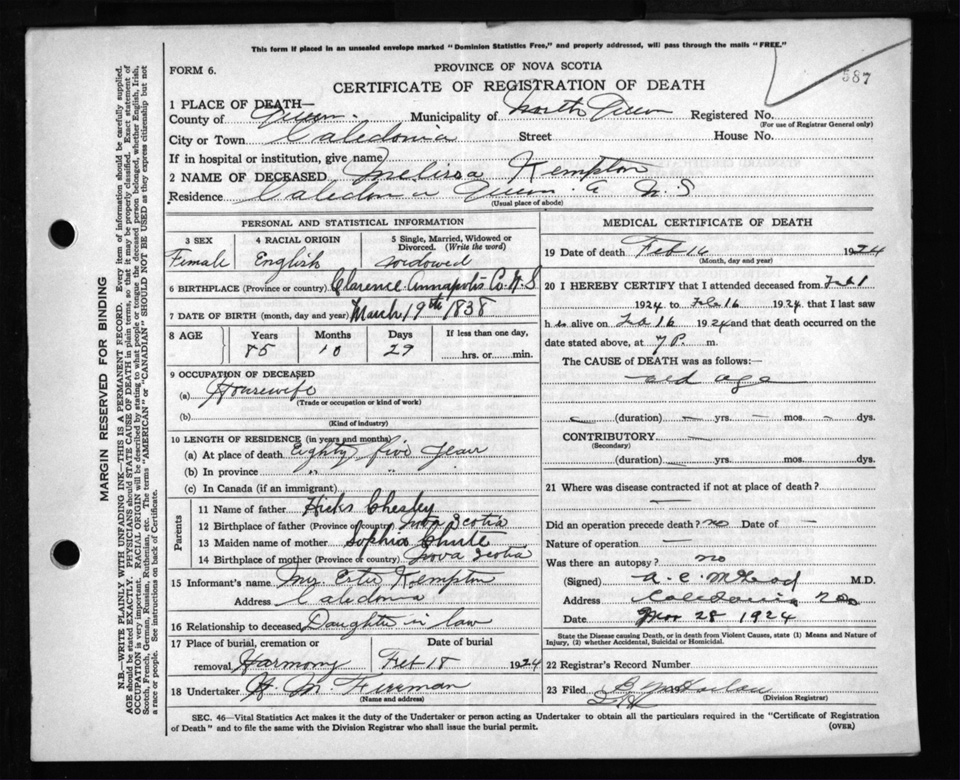 This form if placed in an unsealed envelope marked "Dominion Statistics Free," and properly addressed, will pass through the mails "FREE."
FORM 6.
PROVINCE OF NOVA SCOTIA
587
CERTIFICATE OF REGISTRATION OF DEATH
1 PLACE OF DEATH—
County of Queen. Municipality of North Queen Registered No.
(For use of Registrar General only)
City or Town Caledonia Street House No.
If in hospital or institution, give name)
2 NAME OF DECEASED Melissa Kempton
Residence Caledonia Queen N S
(Usual place of abode)
PERSONAL AND STATISTICAL INFORMATION
3 SEX 4 RACIAL ORIGIN 5 Single, Married, Widowed or Divorced. (Write the word)
Female English widowed
6 BIRTHPLACE (Province or country) Clarence Annapolis Co N.S
7 DATE OF BIRTH (month, day and year) March 19th 1838
8 AGE Years Months Days If less than one day,
85 10 29 hrs. or min.
9 OCCUPATION OF DECEASED
(a) Housewife
(Trade or occupation or kind of work)
(b)
(Kind of industry)
10 LENGTH OF RESIDENCE (in years and months)
(a) At place of death Eighty five year
(b) In province " "
(c) In Canada (if an immigrant)
Parents
11 Name of father Hicks Chesley
12 Birthplace of father (Province or country) Nova Scotia
13 Maiden name of mother Sophia Chute
14 Birthplace of mother (Province or country) Nova Scotia
15 Informant's name Mrs Kempton
Address Caledonia
16 Relationship to deceased Daughter in law
17 Place of burial, cremation or Date of burial
removal Harmony Feb 18 1924
18 Undertaker H. M. Freeman
(Name and address)
MEDICAL CERTIFICATE OF DEATH
19 Date of death Feb 16 1924
(Month, day and year)
20 I HEREBY CERTIFY that I attended deceased from Feb 1
1924 to Feb 16 1924 that I last saw
h alive on Feb 16 1924 and that death occurred on the
date stated above, at 7 P. m.
The CAUSE of DEATH was as follows:
old age
(duration) — yrs. — mos. — dys.
CONTRIBUTORY —
(Secondary)
(duration) — yrs. — mos. — dys.
21 Where was disease contracted if not at place of death?
—
Did an operation precede death? no Date of —
Nature of operation —
Was there an autopsy? no
(Signed) A. C. M.D.
Address Caledonia
Date Nov 28 1924
State the Disease causing Death, or in death from Violent Causes, state (1) Means and Nature of
Injury, (2) whether Accidental, Suicidal or Homicidal.
22 Registrar's Record Number
23 Filed
(Division Registrar)
SEC. 46—Vital Statistics Act makes it the duty of the Undertaker or person acting as Undertaker to obtain all the particulars required in the "Certificate of Registration
of Death" and to file the same with the Division Registrar who shall issue the burial permit. (OVER)
MARGIN RESERVED FOR BINDING
N.B.—WRITE PLAINLY WITH UNFADING INK—THIS IS A PERMANENT RECORD. Every item of information should be carefully supplied.
AGE should be stated EXACTLY. PHYSICIANS should STATE CAUSE OF DEATH in plain terms, so that it may be properly classified. Exact statement of
OCCUPATION is very important. RACIAL ORIGIN will be described by stating to what people or tongue the deceased person belonged, whether English, Irish,
Scotch, French, German, Russian, Ruthenian, etc. The terms "AMERICAN" or "CANADIAN" SHOULD NOT BE USED as they express citizenship but not
a race or people. See instructions on back of Certificate.